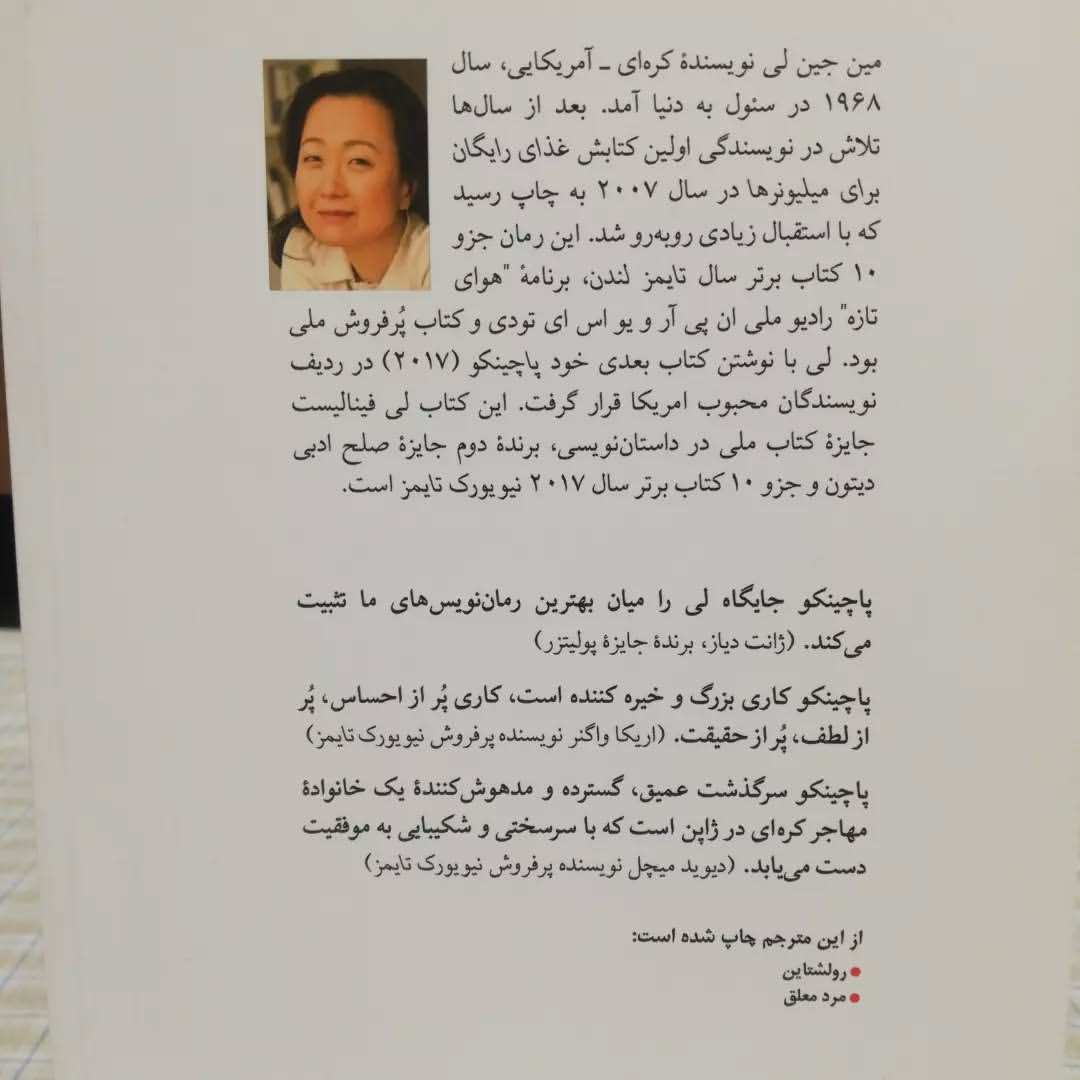 مین جین لی نویسندهٔ کره‌ای ـ آمریکایی، سال
۱۹۶۸ در سئول به دنیا آمد. بعد از سال‌ها
تلاش در نویسندگی اولین کتابش غذای رایگان
برای میلیونرها در سال ۲۰۰۷ به چاپ رسید
که با استقبال زیادی روبه‌رو شد. این رمان جزو
۱۰ کتاب برتر سال تایمز لندن، برنامهٔ "هوای
تازه" رادیو ملی ان پی آر و یو اس ای تودی و کتاب پُرفروش ملی
بود. لی با نوشتن کتاب بعدی خود پاچینکو (۲۰۱۷) در ردیف
نویسندگان محبوب امریکا قرار گرفت. این کتاب لی فینالیست
جایزهٔ کتاب ملی در داستان‌نویسی، برندهٔ دوم جایزهٔ صلح ادبی
دیتون و جزو ۱۰ کتاب برتر سال ۲۰۱۷ نیویورک تایمز است.
پاچینکو جایگاه لی را میان بهترین رمان‌نویس‌های ما تثبیت
می‌کند. (ژانت دیاز، برندهٔ جایزهٔ پولیتزر)
پاچینکو کاری بزرگ و خیره کننده است، کاری پُر از احساس، پُر
از لطف، پُر از حقیقت. (اریکا واگنر نویسنده پرفروش نیویورک تایمز)
پاچینکو سرگذشت عمیق، گسترده و مدهوش‌کنندهٔ یک خانوادهٔ
مهاجر کره‌ای در ژاپن است که با سرسختی و شکیبایی به موفقیت
دست می‌یابد. (دیوید میچل نویسنده پرفروش نیویورک تایمز)
از این مترجم چاپ شده است:
● رولشتاین
● مرد معلق